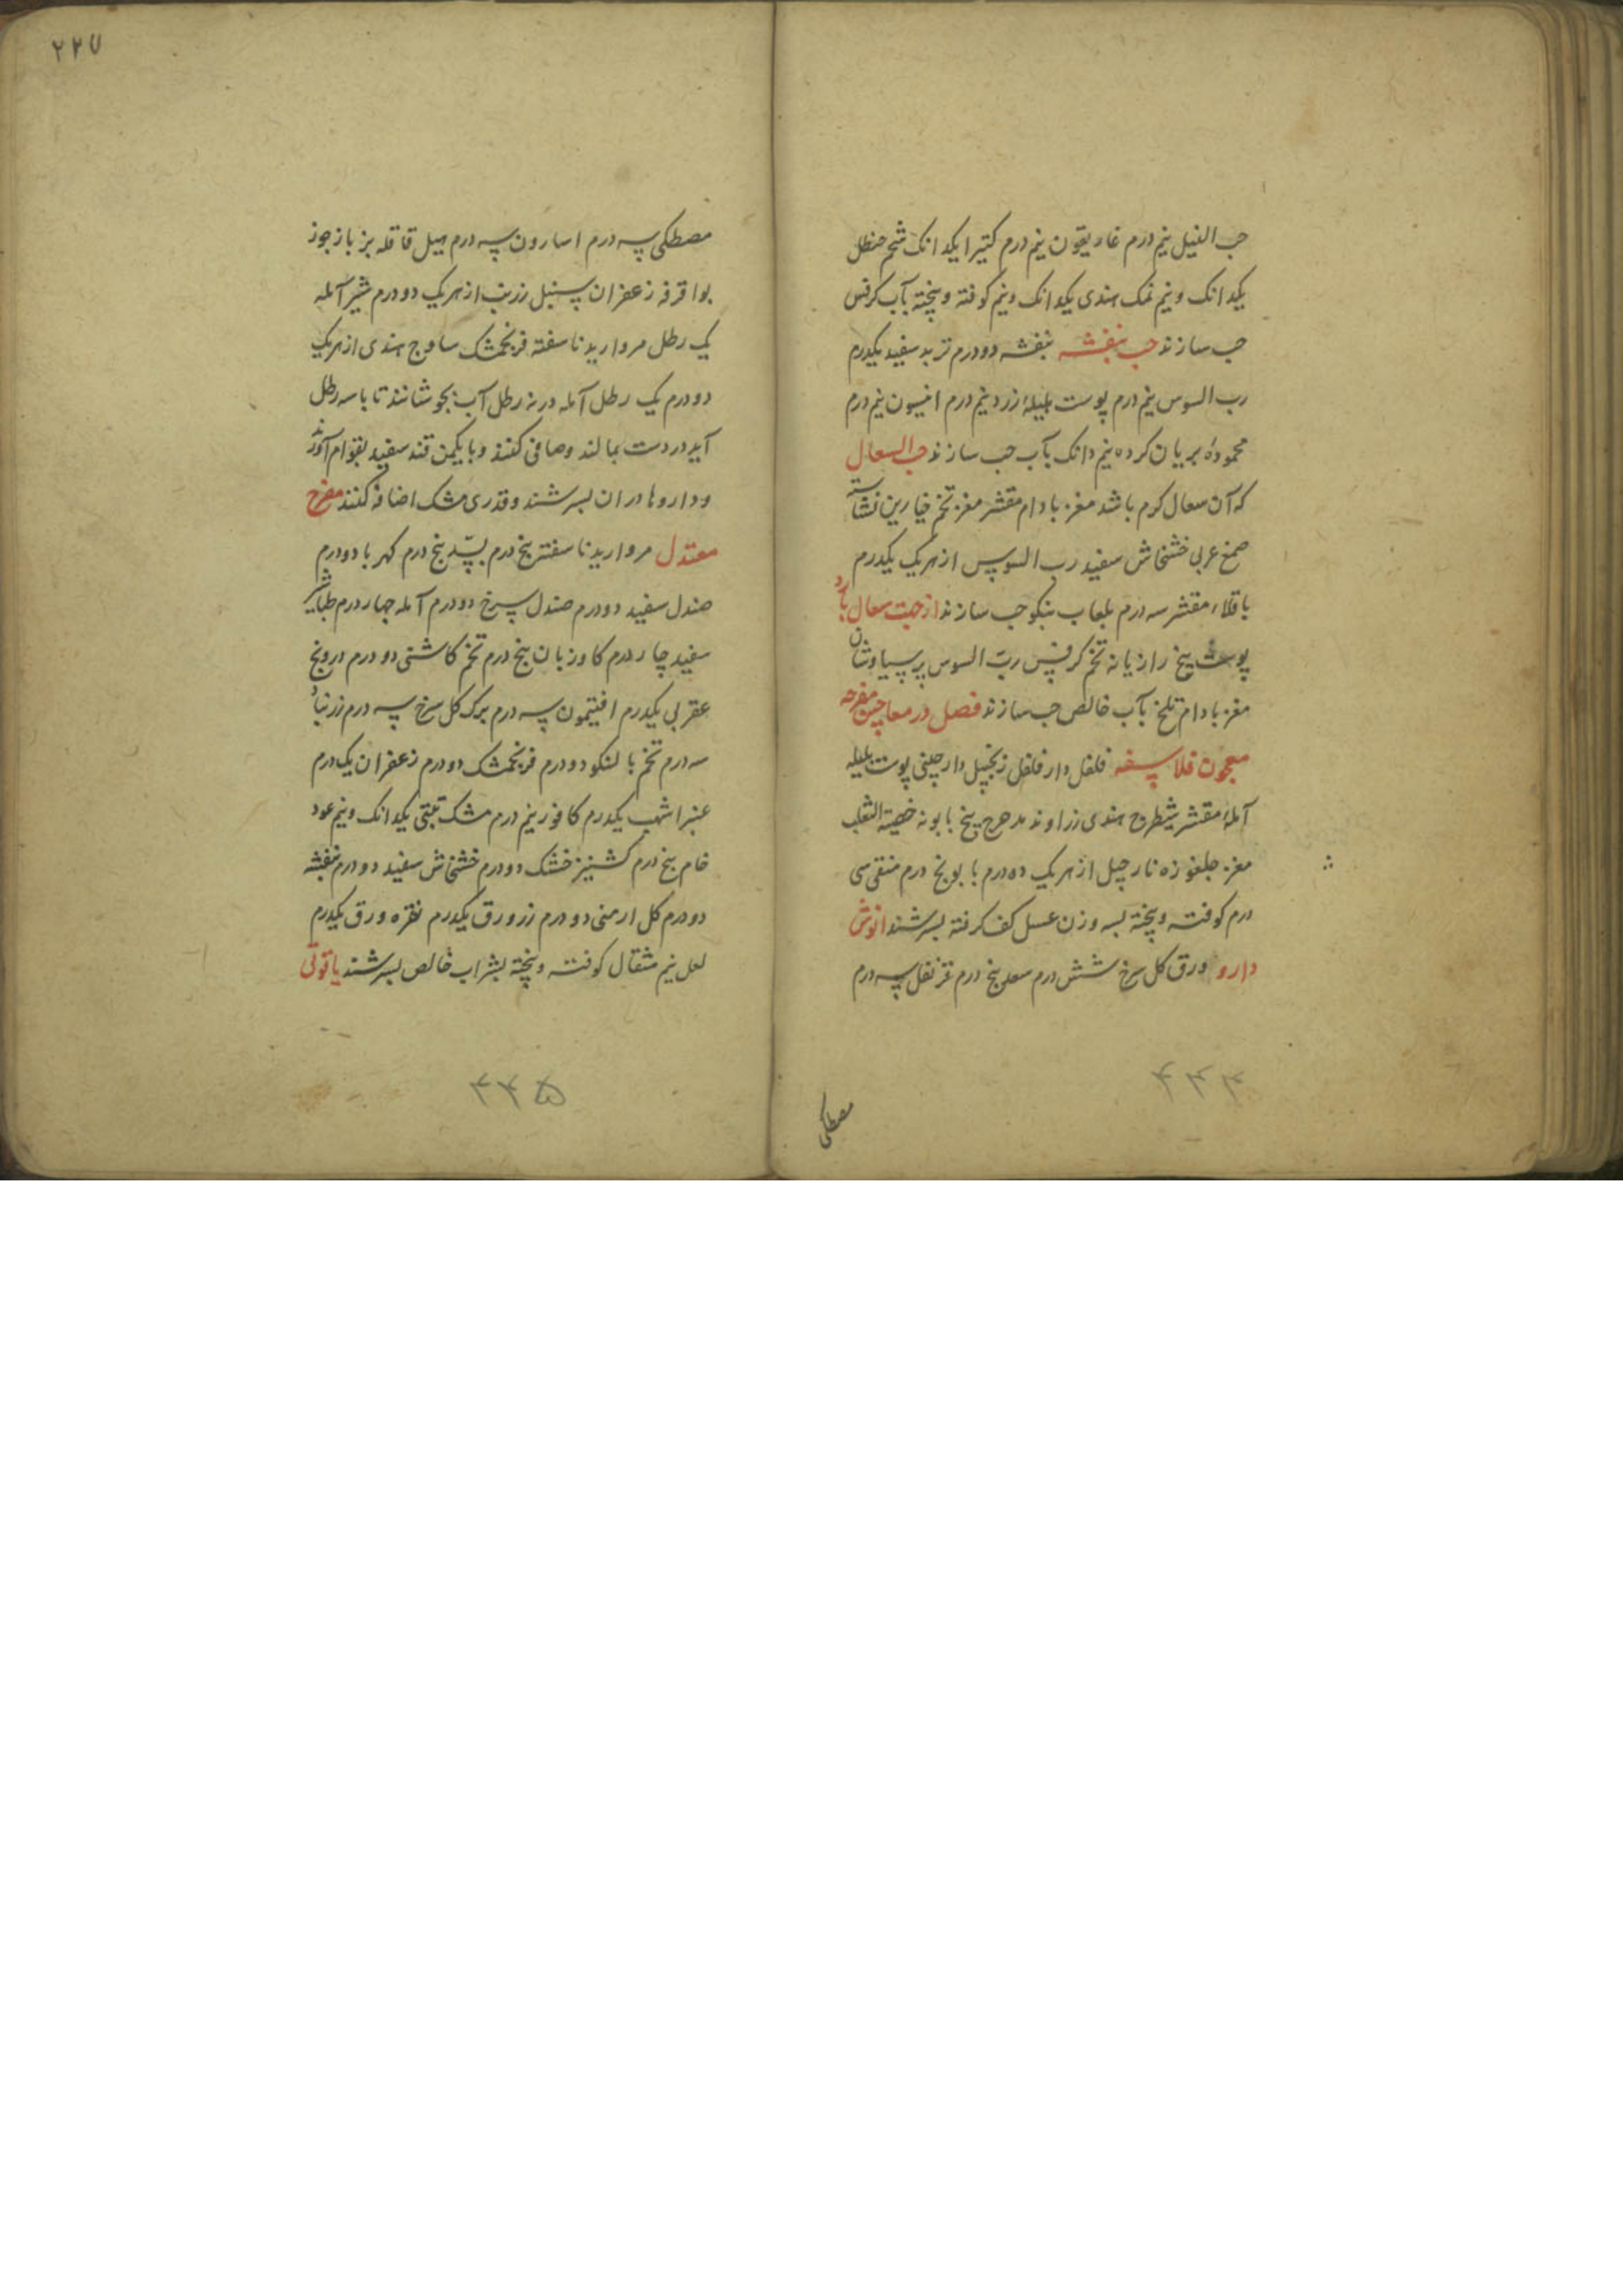 حب النیل نیم درم غاریقون نیم درم کتیرا یکدانک شحم حنظل
یکدانک و نیم نمک هندی یکدانک و نیم کوفته و بیخته بآب کرفس
حب سازند حب بنفشه بنفشه دودرم تربد سفید یکدرم
رب السوس نیم درم پوست هلیلهٔ زرد نیم درم انیسون نیم درم
محمودهٔ بریان کرده نیم دانک بآب حب سازند حب السعال
که آن سعال کرم باشد مغز بادام مقشر مغز تخم خیارین نشاسته
صمغ عربی خشخاش سفید رب السوس از هریک یکدرم
باقلاء مقشر سه درم بلعاب بنکو حب سازند از جهت سعال بارد
پوست بیخ رازیانه تخم کرفس ربّ السوس پرسیاوشان
مغز بادام تلخ بآب خالص حب سازند فصل در معاجین مفرحه
معجون فلاسفه فلفل دارفلفل زنجبیل دارچینی پوست بلیله
آملهٔ مقشر شیطرح هندی زراوند مدحرج بیخ بابونه خصیة الثعلب
مغز جلغوزه نارجیل از هریک ده درم بابونج درم منقی سی
درم کوفته و بیخته بسه وزن عسل کف کرفته بسرشند انوش
دارو ورق کل سرخ شش درم سعد پنج درم قرنفل سه درم
۴۴۴
مصطکی
۲۲۷
مصطکی سه درم اسارون سه درم هیل قاقله بزباز جوز
بوا قرفه زعفران سنبل زرنب از هریک دودرم شیر آمله
یک رطل مروارید ناسفته فرنجمشک ساوج هندی از هریک
دودرم یک رطل آمله در نه رطل آب بجوشانند تا باسه رطل
آید در دست بمالند و صافی کنند و با یکمن قند سفید بقوام آورند
و داروها در ان بسرشند و قدری مشک اضافه کنند مفرح
معتدل مروارید ناسفته پنج درم بسّد پنج درم کهربا دودرم
صندل سفید دودرم صندل سرخ دودرم آمله چهار درم طباشیر
سفید چهار درم کاوزبان پنج درم تخم کاشنی دودرم درونج
عقربی یکدرم افتیمون سه درم برک کل سرخ سه درم زرنباد
سه درم تخم بالنکو دودرم فرنجمشک دودرم زعفران یک درم
عنبر اشهب یکدرم کافور نیم درم مشک تبتی یکدانک و نیم عود
خام پنج درم کشنیز خشک دودرم خشخاش سفید دودرم بنفشه
دودرم کل ارمنی دودرم زر ورق یکدرم نقره ورق یکدرم
لعل نیم مثقال کوفته و بیخته بشراب خالص بسرشند یاقوتی
۴۴۵